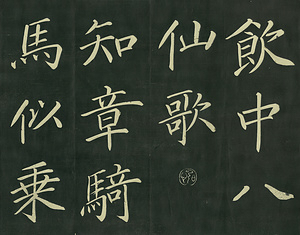 飲中八
仙歌
知章騎
馬似乗